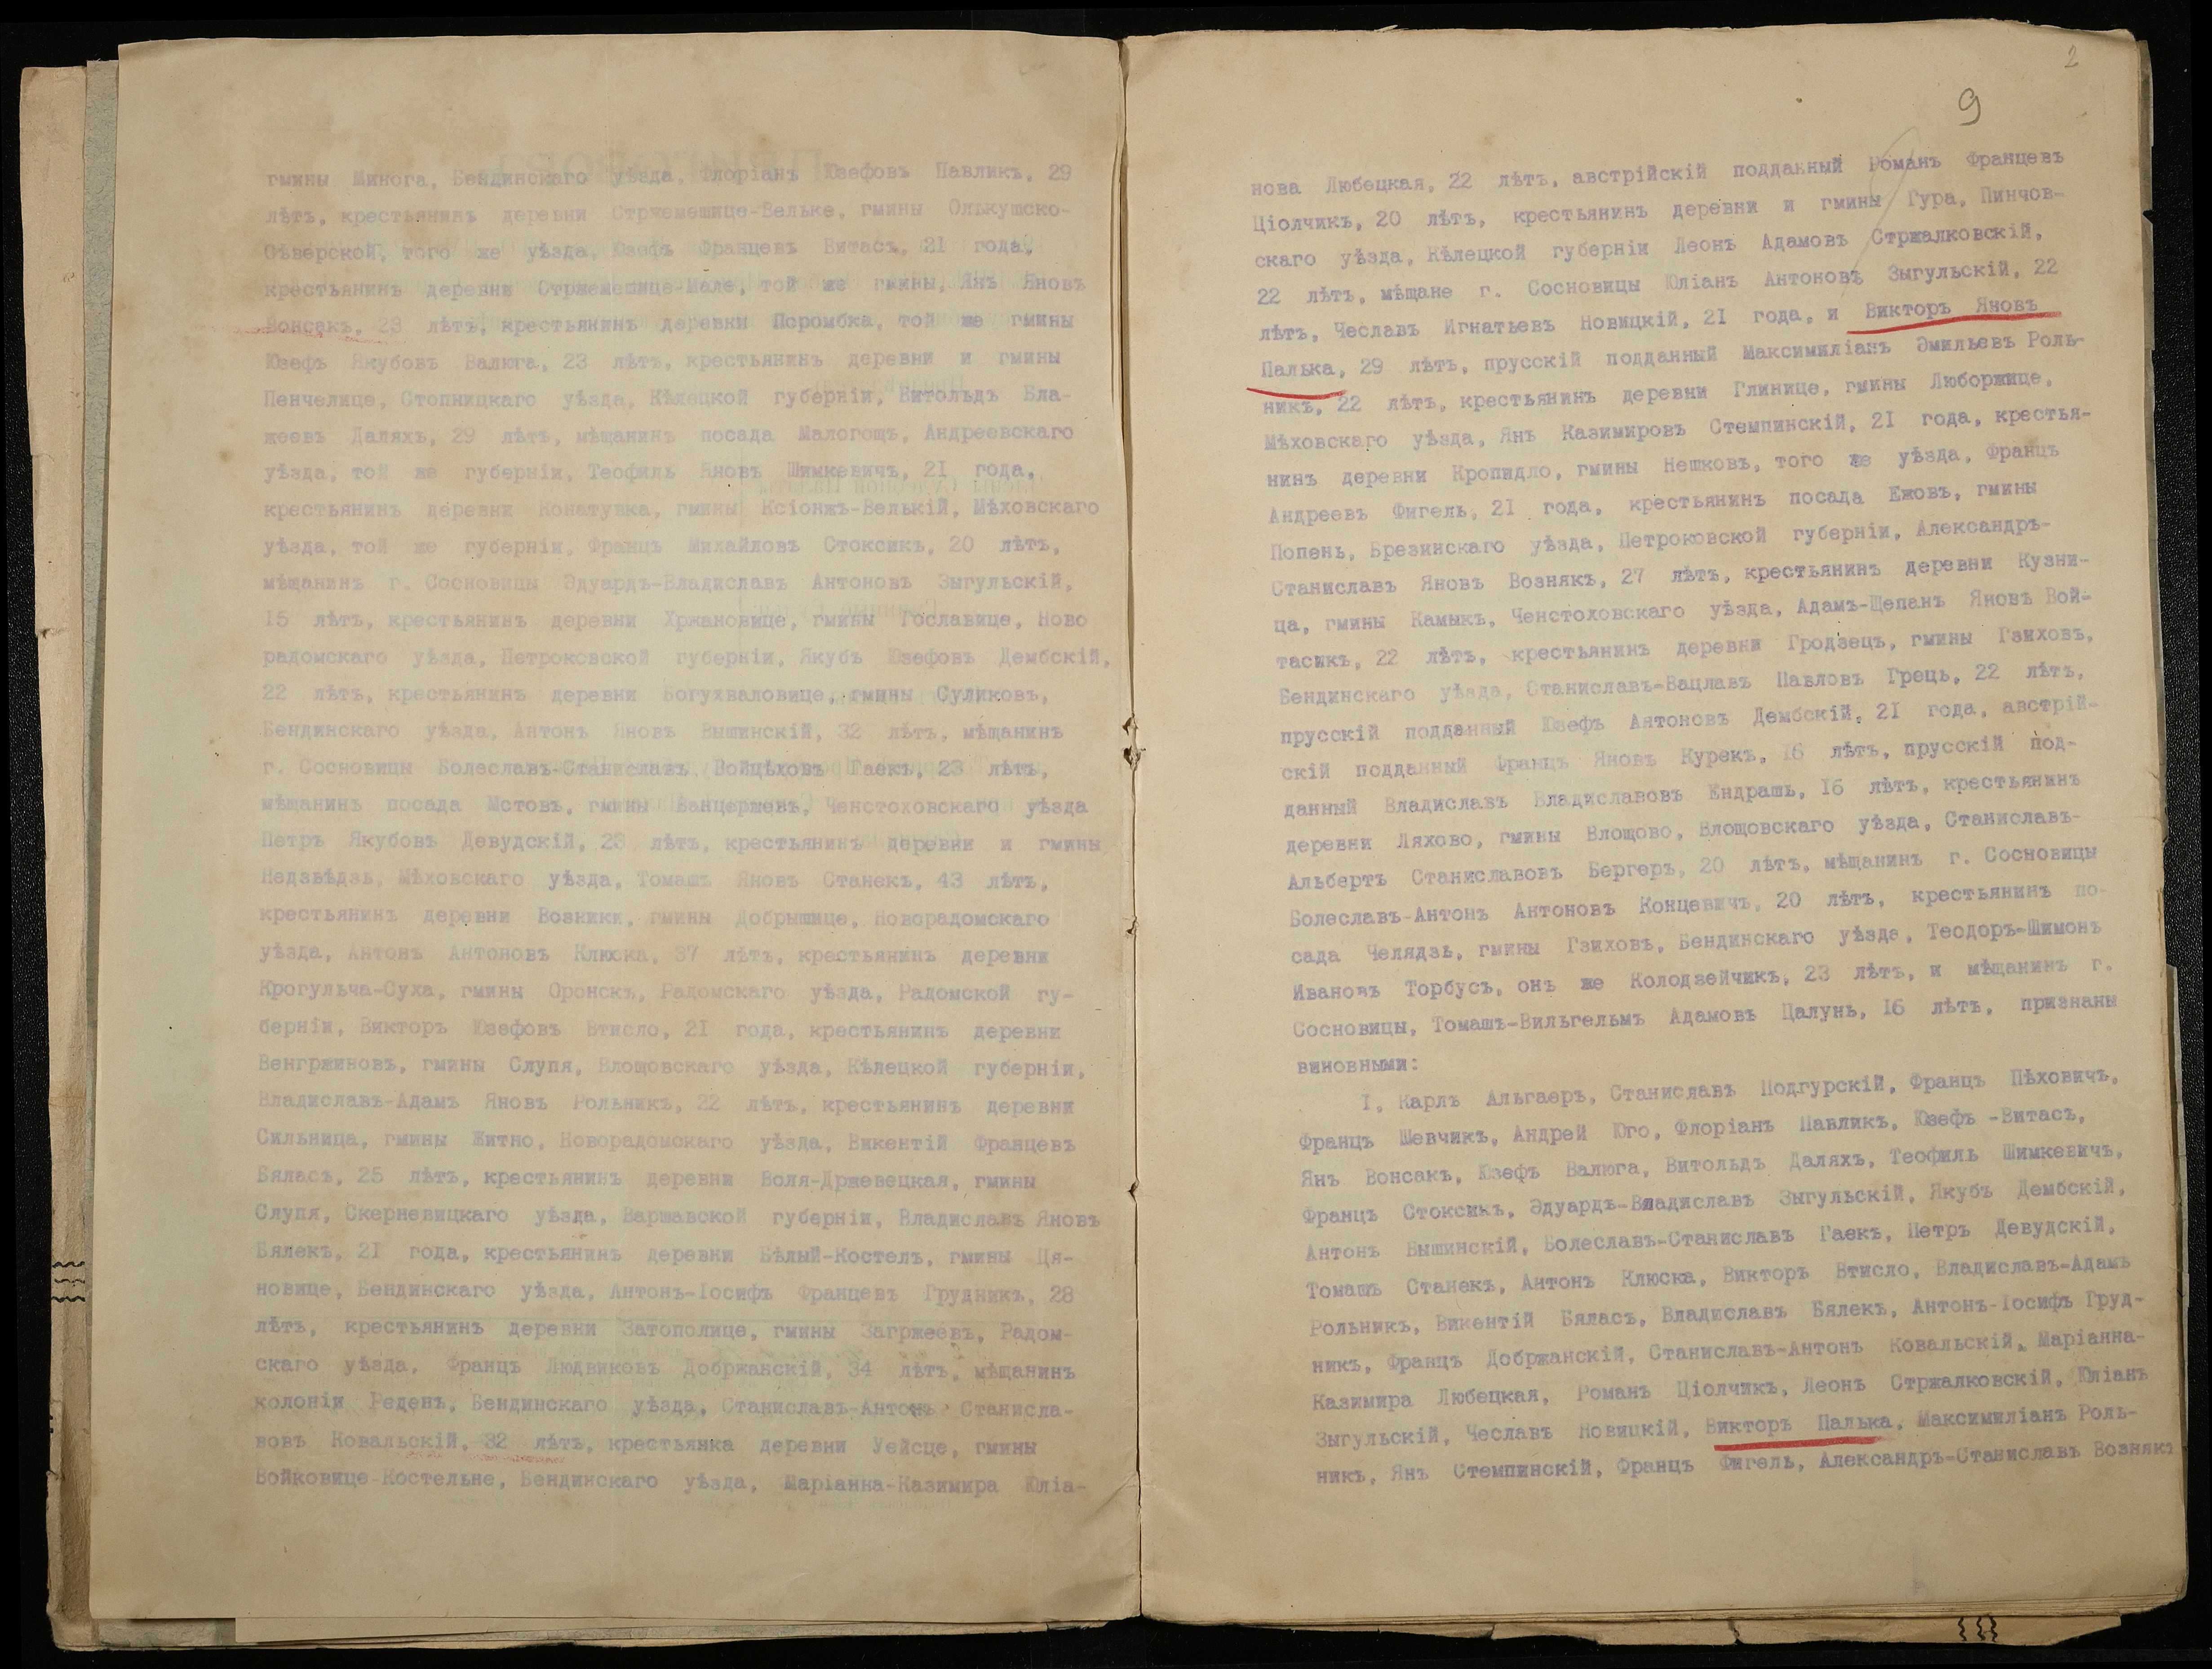 гмины Минога, Бендинскаго уѣзда, Флоріанъ Юзефовъ Павликъ, 29
лѣтъ, крестьянинъ деревни Стржемешице-Вельке, гмины Олькушско-
Сѣверской, того же уѣзда, Юзефъ Францевъ Витасъ, 21 года,
крестьянинъ деревни Стржемешице-Мале, той же гмины, Янъ Яновъ
Вонсакъ, 23 лѣтъ, крестьянинъ деревни Поромбка, той же гмины
Юзефъ Якубовъ Валюга, 23 лѣтъ, крестьянинъ деревни и гмины
Пенчелице, Стопницкаго уѣзда, Кѣлецкой губерніи, Витольдъ Бла-
жеевъ Даляхъ, 29 лѣтъ, мѣщанинъ посада Малогощъ, Андреевскаго
уѣзда, той же губерніи, Теофиль Яновъ Шимкевичъ, 21 года,
крестьянинъ деревни Конатувка, гмины Ксіонжъ-Велькій, Мѣховскаго
уѣзда, той же губерніи, Францъ Михайловъ Стоксикъ, 20 лѣтъ,
мѣщанинъ г. Сосновицы Эдуардъ-Владиславъ Антоновъ Зыгульскій,
15 лѣтъ, крестьянинъ деревни Хржановице, гмины Гославице, Ново
радомскаго уѣзда, Петроковской губерніи, Якубъ Юзефовъ Дембскій,
22 лѣтъ, крестьянинъ деревни Богухваловице, гмины Суликовъ,
Бендинскаго уѣзда, Антонъ Яновъ Вышинскій, 32 лѣтъ, мѣщанинъ
г. Сосновицы Болеславъ-Станиславъ Войцѣховъ Гаекъ, 23 лѣтъ,
мѣщанинъ посада Мстовъ, гмины Ванцержевъ, Ченстоховскаго уѣзда
Петръ Якубовъ Девудскій, 23 лѣтъ, крестьянинъ деревни и гмины
Недзвѣдзь, Мѣховскаго уѣзда, Томашъ Яновъ Станекъ, 43 лѣтъ,
крестьянинъ деревни Возники, гмины Добрышице, Новорадомскаго
уѣзда, Антонъ Антоновъ Клюска, 37 лѣтъ, крестьянинъ деревни
Крогульча-Суха, гмины Оронскъ, Радомскаго уѣзда, Радомской гу-
берніи, Викторъ Юзефовъ Втисло, 21 года, крестьянинъ деревни
Венгржиновъ, гмины Слупя, Влощовскаго уѣзда, Кѣлецкой губерніи,
Владиславъ-Адамъ Яновъ Рольникъ, 22 лѣтъ, крестьянинъ деревни
Сильница, гмины Житно, Новорадомскаго уѣзда, Викентій Францевъ
Бяласъ, 25 лѣтъ, крестьянинъ деревни Воля-Држевецкая, гмины
Слупя, Скерневицкаго уѣзда, Варшавской губерніи, Владиславъ Яновъ
Бялекъ, 21 года, крестьянинъ деревни Бѣлый-Костелъ, гмины Ця-
новице, Бендинскаго уѣзда, Антонъ-Іосифъ Францевъ Грудникъ, 28
лѣтъ, крестьянинъ деревни Затополице, гмины Загржеевъ, Радом-
скаго уѣзда, Францъ Людвиковъ Добржанскій, 34 лѣтъ, мѣщанинъ
колоніи Реденъ, Бендинскаго уѣзда, Станиславъ-Антонъ Станисла-
вовъ Ковальскій, 32 лѣтъ, крестьянка деревни Уейсце, гмины
Войковице-Костельне, Бендинскаго уѣзда, Маріанна-Казимира Юліа-
2
9
нова Любецкая, 22 лѣтъ, австрійскій подданный Романъ Францевъ
Ціолчикъ, 20 лѣтъ, крестьянинъ деревни и гмины Гура, Пинчов-
скаго уѣзда, Кѣлецкой губерніи Леонъ Адамовъ Стржалковскій,
22 лѣтъ, мѣщане г. Сосновицы Юліанъ Антоновъ Зыгульскій, 22
лѣтъ, Чеславъ Игнатьевъ Новицкій, 21 года, и Викторъ Яновъ
Палька, 29 лѣтъ, прусскій подданный Максимиліанъ Эмильевъ Роль-
никъ, 22 лѣтъ, крестьянинъ деревни Глинице, гмины Люборжице,
Мѣховскаго уѣзда, Янъ Казимировъ Стемпинскій, 21 года, крестья-
нинъ деревни Кропидло, гмины Нешковъ, того же уѣзда, Францъ
Андреевъ Фигель, 21 года, крестьянинъ посада Ежовъ, гмины
Попень, Брезинскаго уѣзда, Петроковской губерніи, Александръ-
Станиславъ Яновъ Вознякъ, 27 лѣтъ, крестьянинъ деревни Кузни-
ца, гмины Камыкъ, Ченстоховскаго уѣзда, Адамъ-Щепанъ Яновъ Вой-
тасикъ, 22 лѣтъ, крестьянинъ деревни Гродзецъ, гмины Гзиховъ,
Бендинскаго уѣзда, Станиславъ-Вацлавъ Павловъ Грець, 22 лѣтъ,
прусскій подданный Юзефъ Антоновъ Дембскій, 21 года, австрій-
скій подданный Францъ Яновъ Курекъ, 16 лѣтъ, прусскій под-
данный Владиславъ Владиславовъ Ендрашъ, 16 лѣтъ, крестьянинъ
деревни Ляхово, гмины Влощово, Влощовскаго уѣзда, Станиславъ-
Альбертъ Станиславовъ Бергеръ, 20 лѣтъ, мѣщанинъ г. Сосновицы
Болеславъ-Антонъ Антоновъ Концевичъ, 20 лѣтъ, крестьянинъ по-
сада Челядзь, гмины Гзиховъ, Бендинскаго уѣзда, Теодоръ-Шимонъ
Ивановъ Торбусъ, онъ же Колодзейчикъ, 23 лѣтъ, и мѣщанинъ г.
Сосновицы, Томашъ-Вильгельмъ Адамовъ Цалунь, 16 лѣтъ, признаны
виновными:
I. Карлъ Альгаеръ, Станиславъ Подгурскій, Францъ Пѣховичъ,
Францъ Шевчикъ, Андрей Юго, Флоріанъ Павликъ, Юзефъ -Витасъ,
Янъ Вонсакъ, Юзефъ Валюга, Витольдъ Даляхъ, Теофиль Шимкевичъ,
Францъ Стоксикъ, Эдуардъ-Владиславъ Зыгульскій, Якубъ Дембскій,
Антонъ Вышинскій, Болеславъ-Станиславъ Гаекъ, Петръ Девудскій,
Томашъ Станекъ, Антонъ Клюска, Викторъ Втисло, Владиславъ-Адамъ
Рольникъ, Викентій Бяласъ, Владиславъ Бялекъ, Антонъ-Іосифъ Груд-
никъ, Францъ Добржанскій, Станиславъ-Антонъ Ковальскій, Маріанна-
Казимира Любецкая, Романъ Ціолчикъ, Леонъ Стржалковскій, Юліанъ
Зыгульскій, Чеславъ Новицкій, Викторъ Палька, Максимиліанъ Роль-
никъ, Янъ Стемпинскій, Францъ Фигель, Александръ-Станиславъ Вознякъ